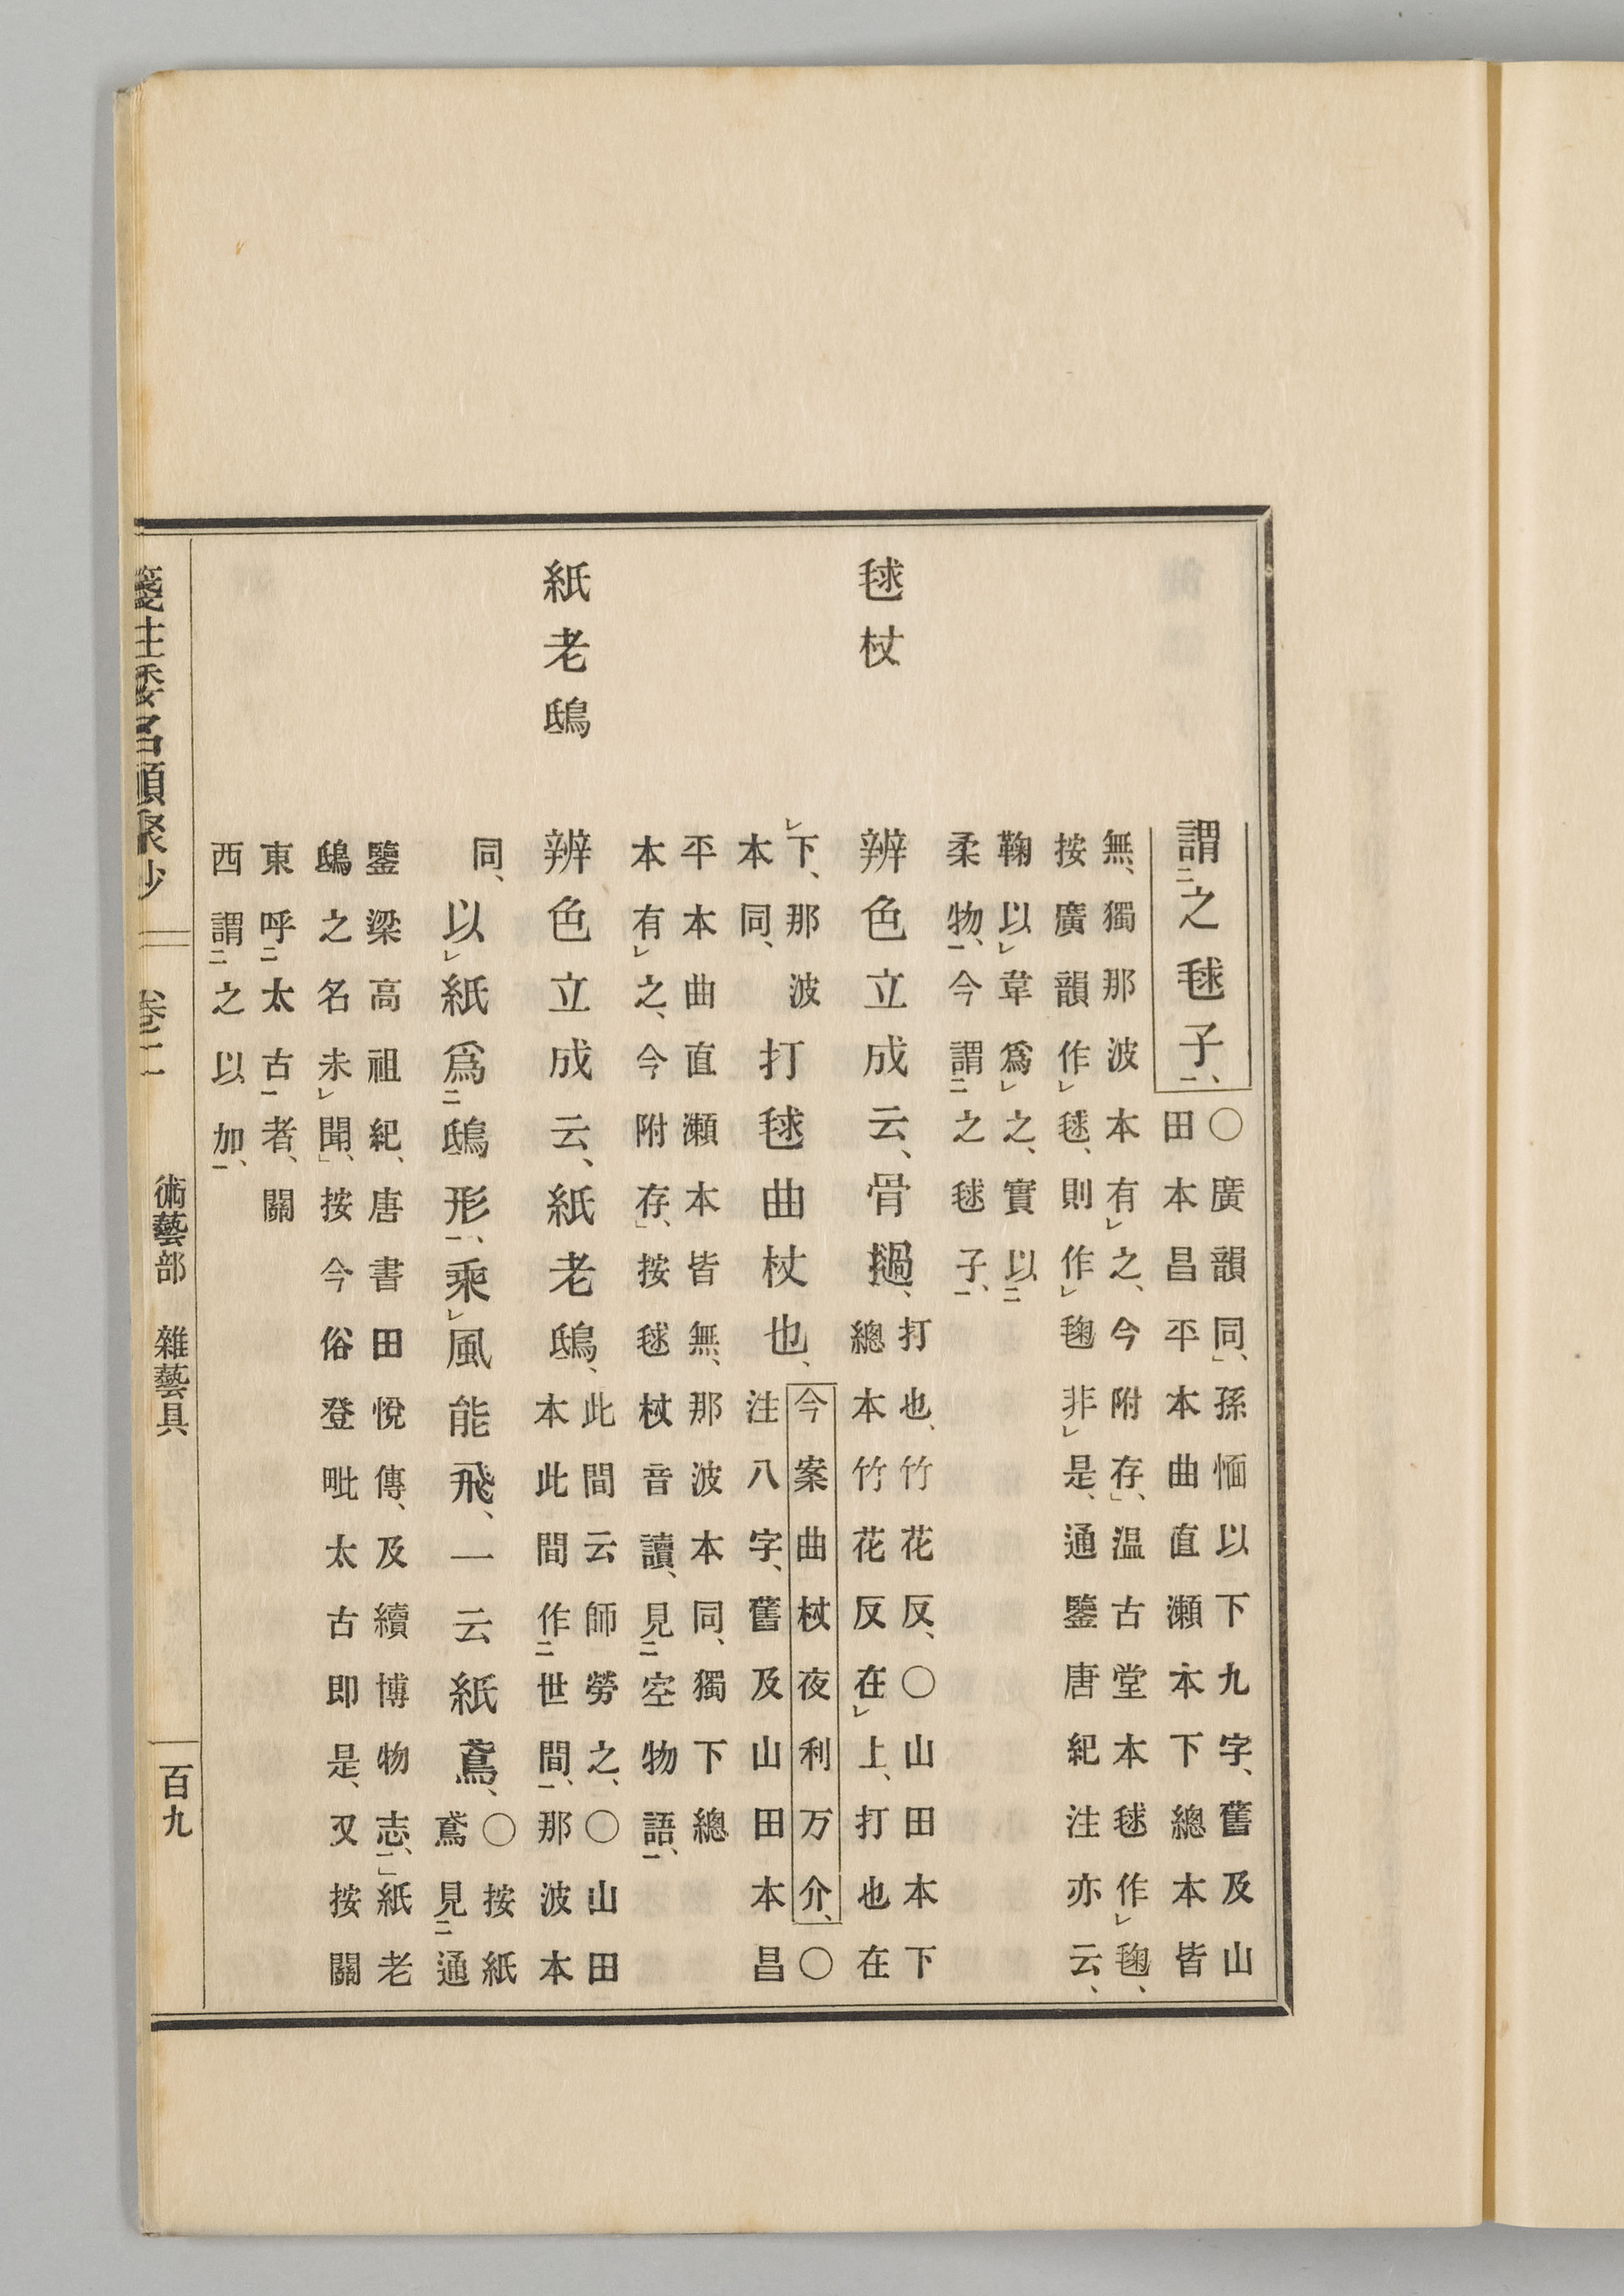 謂㆓之毬子㆒、
○廣韻同、孫愐以下九字、舊及山
田本昌平本曲直瀨本下總本皆
無、獨那波本有㆑之、今附存、温古堂本毬作㆑毱、
按廣韻作㆑毬、則作㆑毱非㆑是、通鑒唐紀注亦云、
鞠以㆑韋爲㆑之、實以㆓
柔物㆒、今謂㆓之毬子㆒、
毬杖
辨色立成云、骨撾、
打也、竹花反、○山田本下
總本竹花反在㆑上、打也在
㆑下、那波
本同、
打毬曲杖也、
今案曲杖夜利万介、○
注八字、舊及山田本昌
平本曲直瀨本皆無、那波本同、獨下總
本有㆑之、今附存、按毬杖音讀、見㆓空物語㆒、
紙老鴟
辨色立成云、紙老鴟、
此間云師勞之、○山田
本此間作㆓世間㆒、那波本
同、
以㆑紙爲㆓鴟形㆒、乘㆑風能飛、一云紙鳶、
○按紙
鳶見㆓通
鑒梁高祖紀、唐書田悅傳、及續博物志㆒、紙老
鴟之名未㆑聞、按今俗登毗太古即是、又按關
東呼㆓太古㆒者、關
西謂㆓之以加㆒、
箋注倭名類聚抄 卷二 術藝部 雜藝具 百九